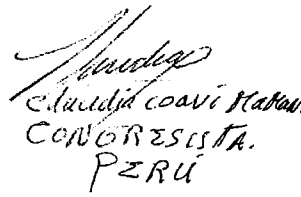 Claudia coari Maman.
CONGRESISTA.
PERÚ